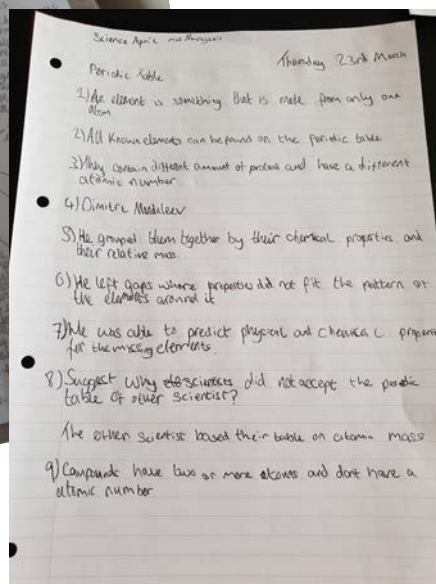 Science April
Thursday 23rd March
Periodic Table
1) An element is something that is made from only one
atom
2) All known elements can be found on the periodic table
3) They contain different amount of protons and have a different
atomic number
4) Dimitri Mendeleev
5) He grouped them together by their chemical properties and
their relative mass.
6) He left gaps where properties did not fit the pattern of
the elements around it
7) He was able to predict physical and chemical proper
for the missing elements.
8) Suggest why scientists did not accept the periodic
table of other scientist?
The other scientist based their table on atomic mass
9) Compounds have two or more atoms and dont have a
atomic number